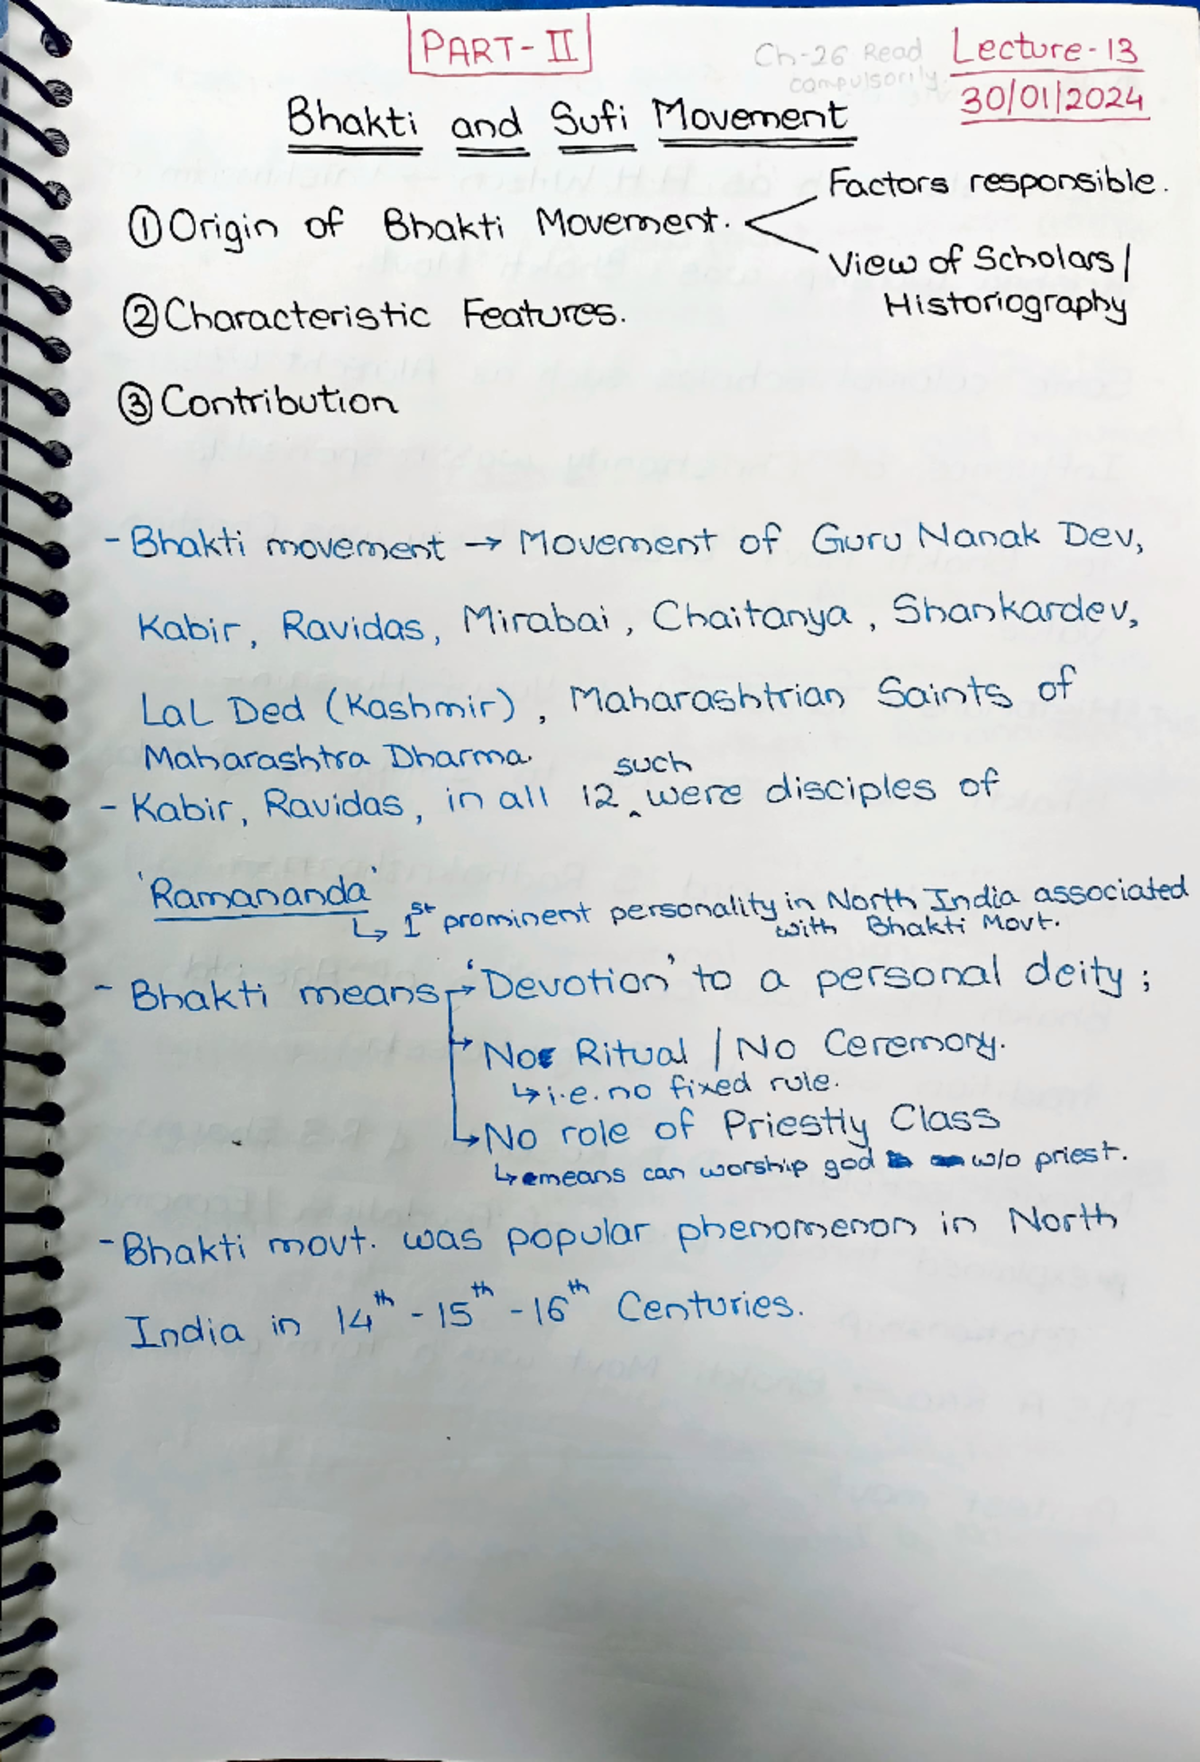 PART-II
Ch-26 Read
compulsorily.
Lecture-13
30/01/2024
Bhakti and Sufi Movement
① Origin of Bhakti Movement.
Factors responsible.
View of Scholars/
Historiography
② Characteristic Features.
③ Contribution
- Bhakti movement → Movement of Guru Nanak Dev,
Kabir, Ravidas, Mirabai, Chaitanya, Shankardev,
Lal Ded (Kashmir), Maharashtrian Saints of
Maharashtra Dharma.
such
- Kabir, Ravidas, in all 12 ‸ were disciples of
'Ramananda'
↳ 1st prominent personality in North India associated
with Bhakti Movt.
- Bhakti means → 'Devotion' to a personal deity;
→ No Ritual / No Ceremony.
↳ i.e. no fixed rule.
↳ No role of Priestly Class
↳ means can worship god w/o priest.
- Bhakti movt. was popular phenomenon in North
India in 14th - 15th - 16th Centuries.